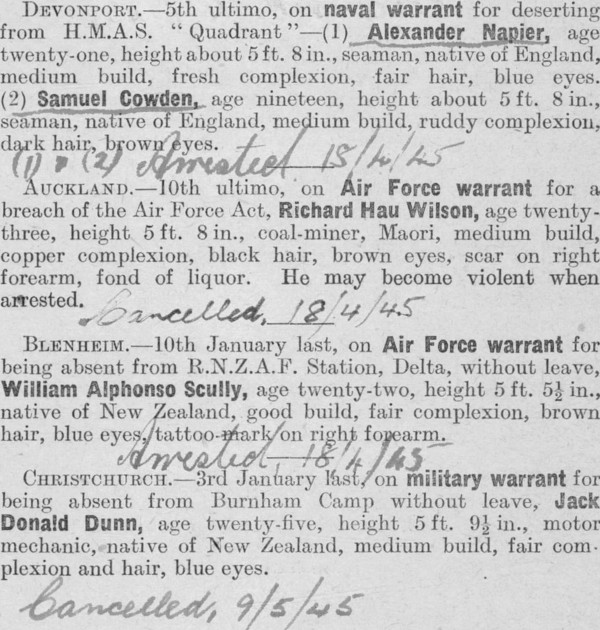 DEVONPORT.—5th ultimo, on naval warrant for deserting
from H.M.A.S. “Quadrant”—(1) Alexander Napier, age
twenty-one, height about 5 ft. 8 in., seaman, native of England,
medium build, fresh complexion, fair hair, blue eyes.
(2) Samuel Cowden, age nineteen, height about 5 ft. 8 in.,
seaman, native of England, medium build, ruddy complexion,
dark hair, brown eyes.
(1) & (2) Arrested 18/4/45
AUCKLAND.—10th ultimo, on Air Force warrant for a
breach of the Air Force Act, Richard Hau Wilson, age twenty-
three, height 5 ft. 8 in., coal-miner, Maori, medium build,
copper complexion, black hair, brown eyes, scar on right
forearm, fond of liquor. He may become violent when
arrested.
Cancelled, 18/4/45
BLENHEIM.—10th January last, on Air Force warrant for
being absent from R.N.Z.A.F. Station, Delta, without leave,
William Alphonso Scully, age twenty-two, height 5 ft. 5½ in.,
native of New Zealand, good build, fair complexion, brown
hair, blue eyes, tattoo-mark on right forearm.
Arrested, 18/4/45
CHRISTCHURCH.—3rd January last, on military warrant for
being absent from Burnham Camp without leave, Jack
Donald Dunn, age twenty-five, height 5 ft. 9½ in., motor
mechanic, native of New Zealand, medium build, fair com-
plexion and hair, blue eyes.
Cancelled, 9/5/45